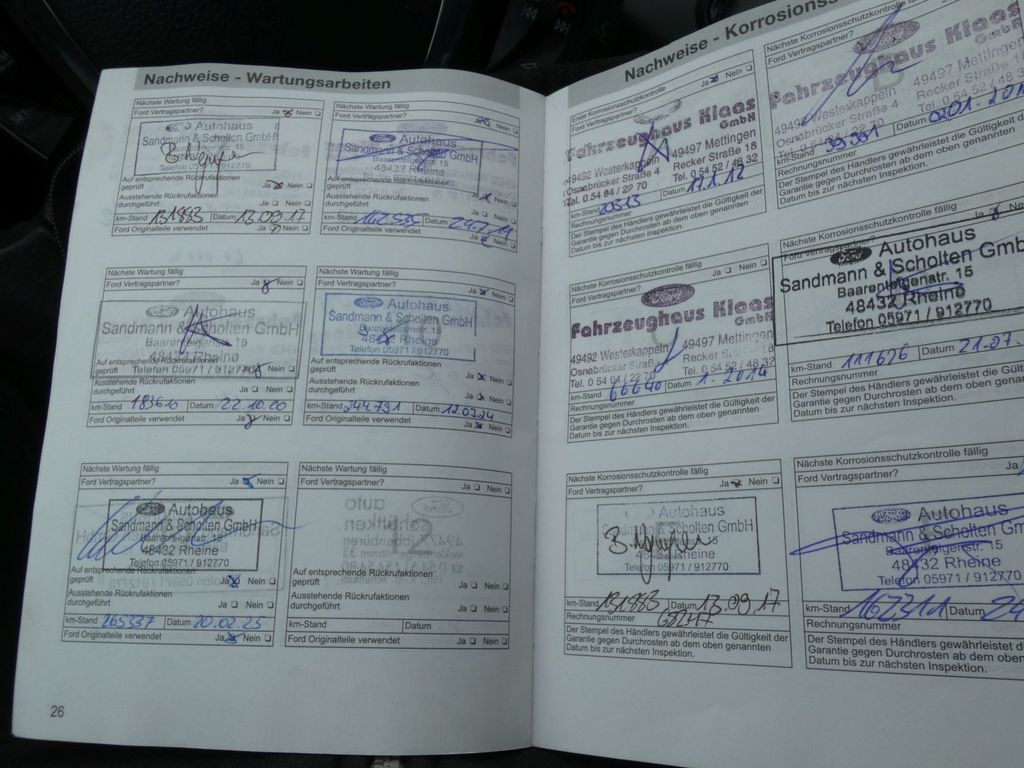 Nachweise - Wartungsarbeiten
Nächste Wartung fällig
Ford Vertragspartner? Ja Nein
Autohaus
Sandmann & Scholten GmbH
Telefon 05971 / 912770
Auf entsprechende Rückrufaktionen
geprüft Ja Nein
Ausstehende Rückrufaktionen
durchgeführt Ja Nein
km-Stand 151983 Datum 13.09.17
Ford Originalteile verwendet Ja Nein
Ja Nein
Autohaus
Sandmann & Scholten GmbH
Baarentelgenstr. 15
48432 Rheine
Auf entsprechende Rückrufaktionen
geprüft Ja Nein
Ausstehende Rückrufaktionen
durchgeführt Ja Nein
km-Stand Datum
Ford Originalteile verwendet Ja Nein
Nächste Wartung fällig
Ford Vertragspartner? Ja Nein
Autohaus
Sandmann & Scholten GmbH
Baarentelgenstr. 15
48432 Rheine
Telefon 05971 / 912770
Auf entsprechende Rückrufaktionen
geprüft Ja Nein
Ausstehende Rückrufaktionen
durchgeführt Ja Nein
km-Stand 183610 Datum 22.10.20
Ford Originalteile verwendet Ja Nein
Nächste Wartung fällig
Ford Vertragspartner? Ja Nein
Autohaus
Sandmann & Scholten GmbH
Baarentelgenstr. 15
48432 Rheine
Telefon 05971 / 912770
Auf entsprechende Rückrufaktionen
geprüft Ja Nein
Ausstehende Rückrufaktionen
durchgeführt Ja Nein
km-Stand 244.791 Datum 12.07.24
Ford Originalteile verwendet Ja Nein
Nächste Wartung fällig
Ford Vertragspartner? Ja Nein
Autohaus
Sandmann & Scholten GmbH
Baarentelgenstr. 15
48432 Rheine
Telefon 05971 / 912770
Auf entsprechende Rückrufaktionen
geprüft Ja Nein
Ausstehende Rückrufaktionen
durchgeführt Ja Nein
km-Stand 265337 Datum 20.02.25
Ford Originalteile verwendet Ja Nein
Nächste Wartung fällig
Ford Vertragspartner? Ja Nein
Auf entsprechende Rückrufaktionen
geprüft Ja Nein
Ausstehende Rückrufaktionen
durchgeführt Ja Nein
km-Stand Datum
Ford Originalteile verwendet Ja Nein
26
Nachweise - Korrosionss
Ford Vertragspartner? Ja Nein
Fahrzeughaus Klaas
GmbH
49492 Westerkappeln 49497 Mettingen
Osnabrücker Straße 4 Recker Straße 18
Tel. 0 54 04 / 22 70 Tel. 0 54 52 / 48 32
km-Stand 20513 Datum 17.1.12
Rechnungsnummer
Der Stempel des Händlers gewährleistet die Gültigkeit der
Garantie gegen Durchrosten ab dem oben genannten
Datum bis zur nächsten Inspektion.
Nächste Korrosionsschutzkontrolle fällig
Ford
Fahrzeughaus Klaas
GmbH
49492 Westerkappeln 49497 Mettingen
Osnabrücker Straße 4 Recker Straße
km-Stand Datum
Rechnungsnummer
Der Stempel des Händlers gewährleistet die Gültigkeit d
Garantie gegen Durchrosten ab dem oben genannten
Datum bis zur nächsten Inspektion.
Nächste Korrosionsschutzkontrolle fällig
Ford Vertragspartner? Ja Nein
Ford
Fahrzeughaus Klaas
GmbH
49492 Westerkappeln 49497 Mettingen
Osnabrücker Straße 4 Recker Straße 18
Tel. 0 54 04 / 22 70 Tel. 0 54 52 / 48 32
km-Stand 66640 Datum 1. 2014
Rechnungsnummer
Der Stempel des Händlers gewährleistet die Gültigkeit der
Garantie gegen Durchrosten ab dem oben genannten
Datum bis zur nächsten Inspektion.
Nächste Korrosionsschutzkontrolle fällig
Ford Vertragspartner? Ja Nein
Ford Autohaus
Sandmann & Scholten GmbH
Baarentelgenstr. 15
48432 Rheine
Telefon 05971 / 912770
km-Stand 111626 Datum 21.07.
Rechnungsnummer
Der Stempel des Händlers gewährleistet die Gültigkei
Garantie gegen Durchrosten ab dem oben genannten
Datum bis zur nächsten Inspektion.
Nächste Korrosionsschutzkontrolle fällig
Ford Vertragspartner? Ja Nein
Autohaus
Sandmann & Scholten GmbH
48432 Rheine
Telefon 05971 / 912770
km-Stand 151983 Datum 13.09.17
Rechnungsnummer
Der Stempel des Händlers gewährleistet die Gültigkeit der
Garantie gegen Durchrosten ab dem oben genannten
Datum bis zur nächsten Inspektion.
Nächste Korrosionsschutzkontrolle fällig
Ford Vertragspartner? Ja
Autohaus
Sandmann & Scholten GmbH
Baarentelgenstr. 15
48432 Rheine
Telefon 05971 / 912770
km-Stand Datum
Rechnungsnummer
Der Stempel des Händlers gewährleistet die Gültig
Garantie gegen Durchrosten ab dem oben genan
Datum bis zur nächsten Inspektion.